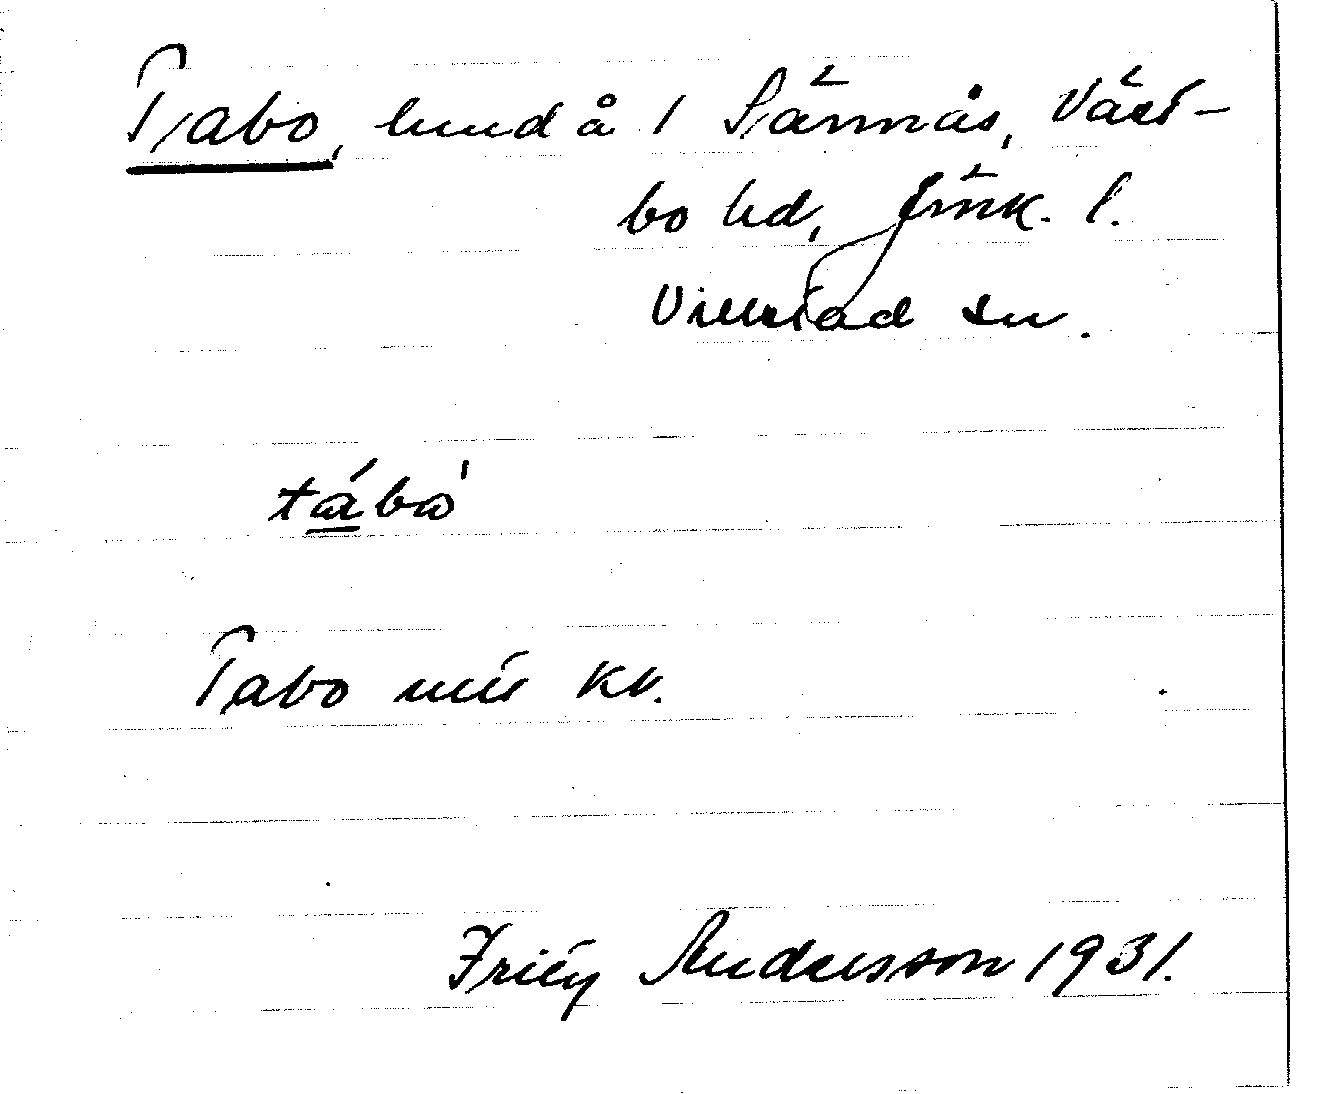 Tabo, lund å 1 Sännås, Väst-
bo hd, Jönk. l.
Villstad sn.
tábo
Tabo mst kv.
Fritz Andersson 1931.